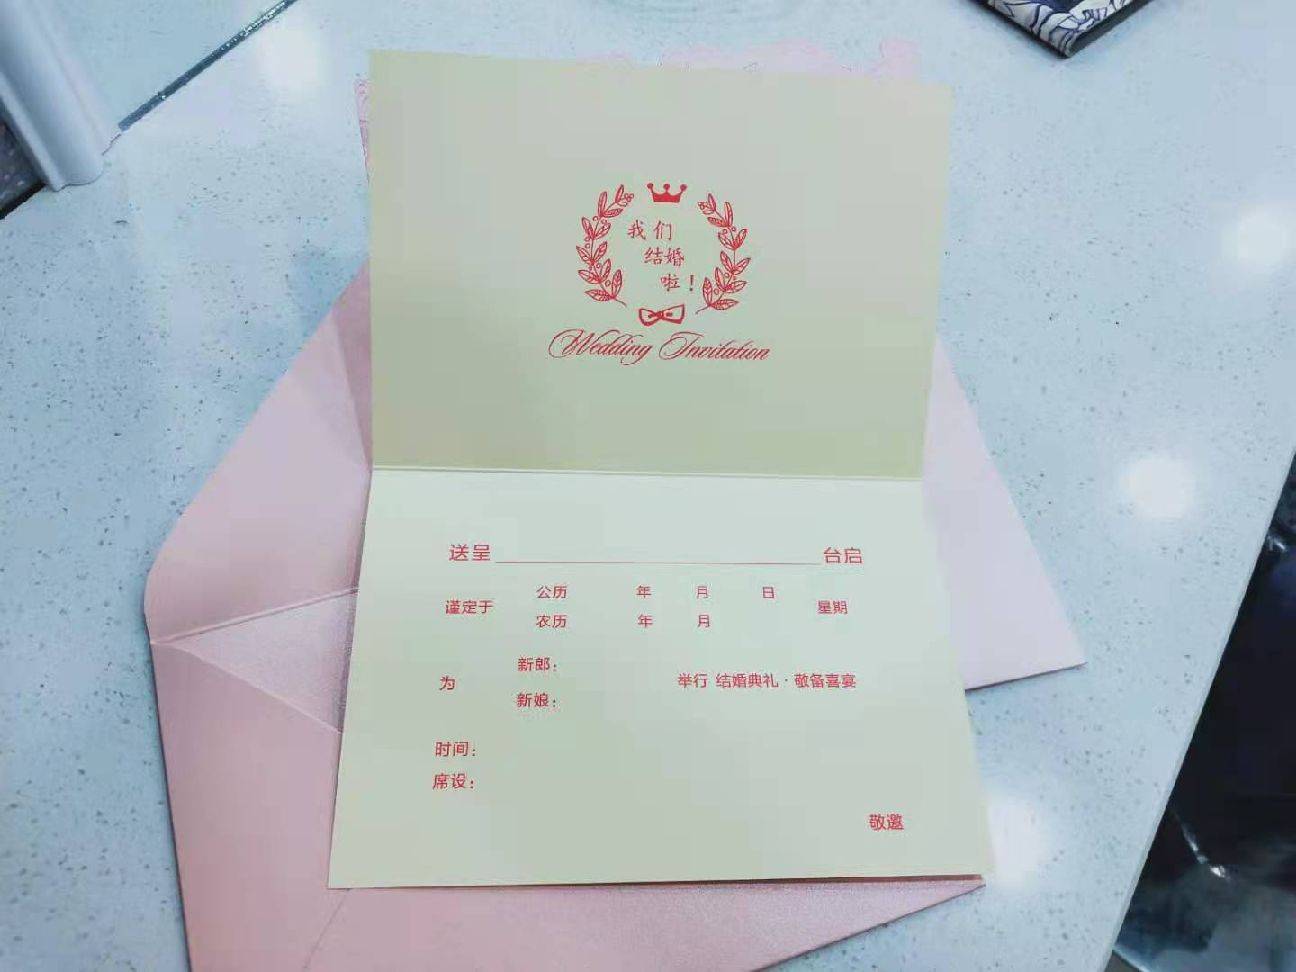 我们
结婚
啦！
Wedding Invitation
送呈 台启
谨定于 公历 年 月 日 星期
农历 年 月
为 新郎：
新娘：
举行 结婚典礼·敬备喜宴
时间：
席设：
敬邀